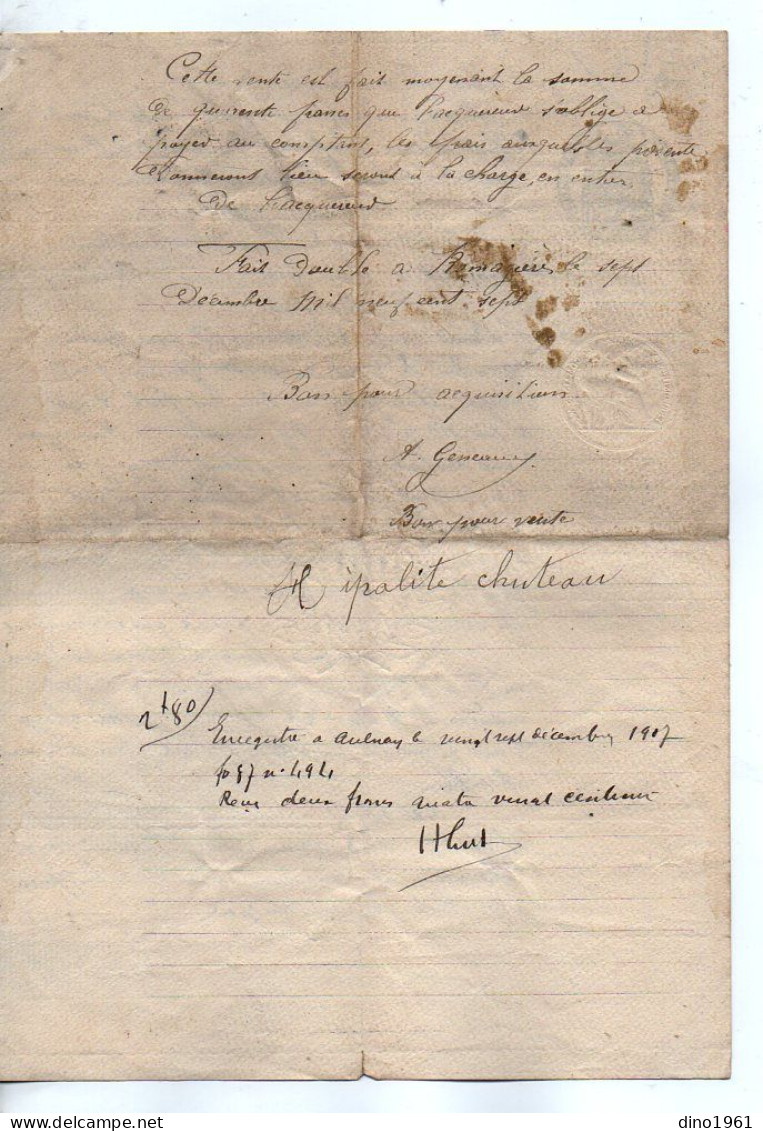 Cette vente est fait moyenant la somme
de quarente francs que l'acquereur s'oblige a
payer au comptant, les frais auxquels les présente
donneront lieu seront à la charge, en entier
De l'acquereur
Fait double a le sept
Décembre mil neuf cent sept
Bon pour acquisition
A.
Bon pour vente
Hipolite chuteau
2f80
Enregistré a aulnay le vingt sept décembre 1907
fo 87 no 494
Recu deux francs quatre vingt centimes
dino1961